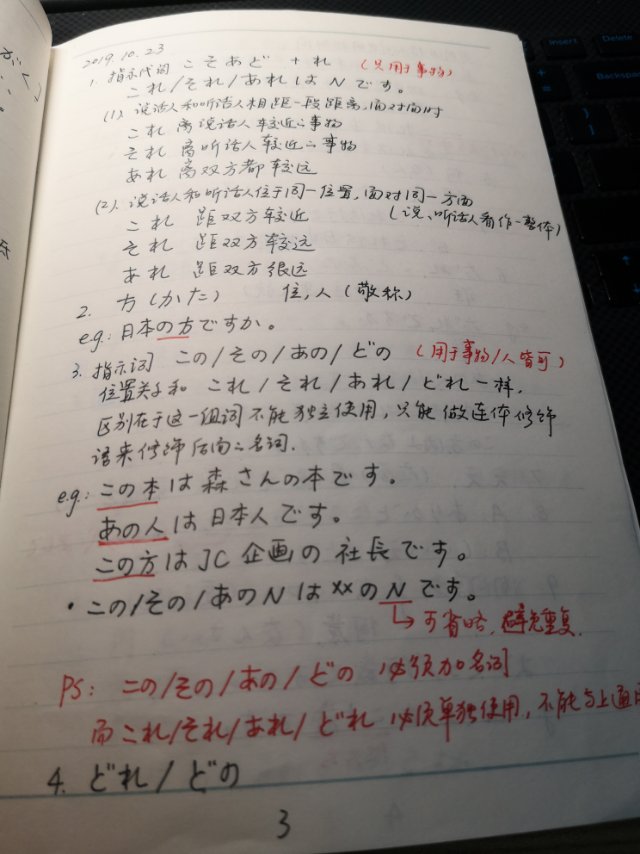 2019.10.23
1. 指示代词 こそあど + れ (只用于事物)
これ/それ/あれはNです。
(1). 说话人和听话人相距一段距离,面对面时
これ 离说话人较近の事物
それ 离听话人较近の事物
あれ 离双方都较远
(2). 说话人和听话人位于同一位置,面对同一方面
これ 距双方较近 (说、听话人看作一整体)
それ 距双方较远
あれ 距双方很远
2. 方(かた) 位,人(敬称)
eg: 日本の方ですか。
3. 指示词 この/その/あの/どの (用于事物/人皆可)
位置关系和 これ/それ/あれ/どれ一样,
区别在于这一组词不能独立使用,只能做连体修饰
语来修饰后面の名词.
eg: この本は森さんの本です。
あの人は日本人です。
この方はJC企画の社長です。
・この/その/あのNは××のNです。
↳可省略,避免重复.
PS: この/その/あの/どの 必须加名词
而これ/それ/あれ/どれ 必须单独使用,不能与上通用
4. どれ/どの
3
がく)
Insert
Delete
Backspace